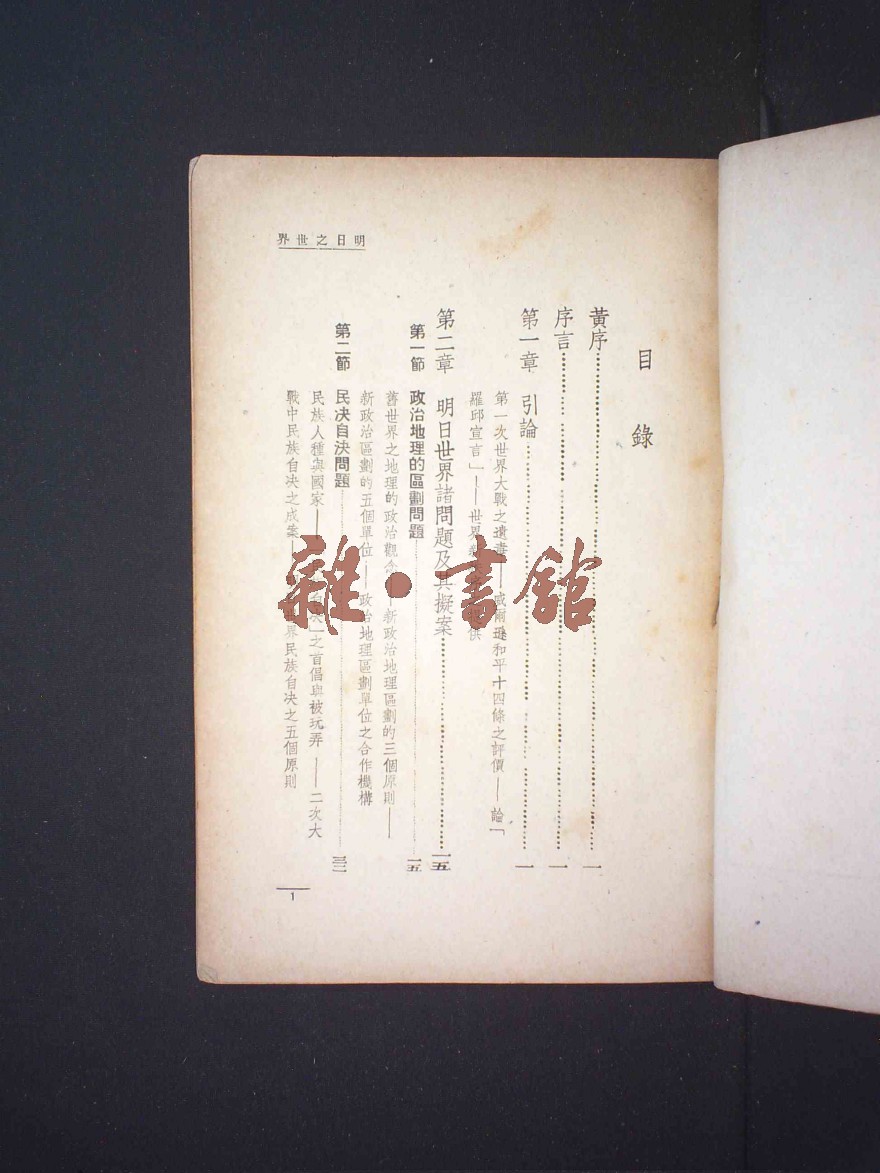 明日之世界
目錄
黃序⋯⋯一
序言⋯⋯一
第一章 引論⋯⋯一
第一次世界大戰之遺毒——威爾遜和平十四條之評價——論「
羅邱宣言」——世界 供
第二章 明日世界諸問題及其擬案⋯⋯一五
第一節 政治地理的區劃問題⋯⋯一五
舊世界之地理的政治觀念——新政治地理區劃的三個原則——
新政治區劃的五個單位——政治地理區劃單位之合作機構
第二節 民决自決問題⋯⋯三二
民族人種與國家—— 自决」之首倡與被玩弄——二次大
戰中民族自决之成案—— 界民族自决之五個原則
1
雜·書館